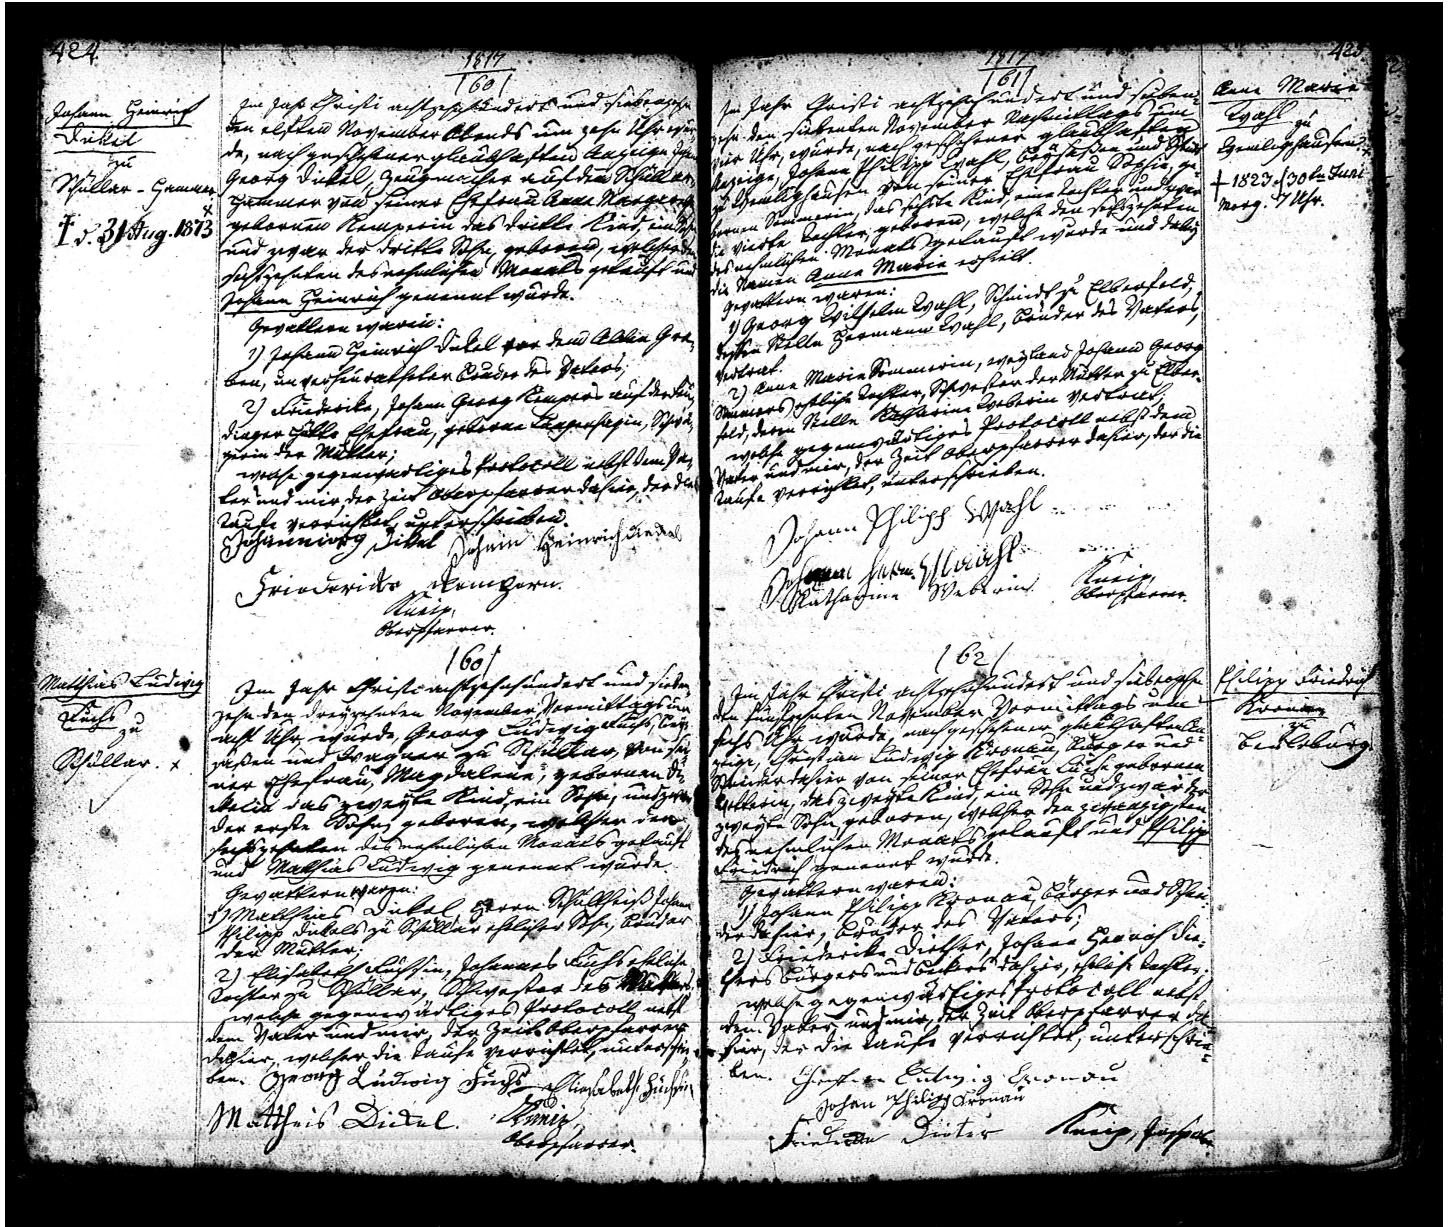 424
1817
/60/
Johann Heinrich
Dickel
zu
Schüllar-Hammer
† d. 31 Aug. 1873
Im Jahr Christi achtzehnhundert und siebenzehn
den elften November Abends um zehn Uhr wur-
de, nach geschehener glaubhaften Anzeige
Georg Dickel, Zeugmacher auf dem Schüllar-
hammer von seiner Ehefrau Anna Margarethe
gebornen Kemperin das dritte Kind, ein Sohn
und zwar der dritte Sohn, geboren, welcher den
sechszehnten des nehmlichen Monats getauft und
Johann Heinrich genennt wurde.
Gevattern waren:
1) Johann Heinrich Dickel vor dem Gra-
ben, unverheuratheter Bruder des Vaters;
2) Friederike, Johann Georg Kempers auf der
Hütte Ehefrau, geborne Schwä-
gerin der Mutter;
welche gegenwärtiges Protocoll nebst dem Va-
ter und mir, der Zeit Oberpfarrer dahier, der die
Taufe verrichtet, unterschrieben.
Dickel Johann Heinrich Dickel
Friedericke Kempern.
Kneip,
Oberpfarrer.
Matthias Ludwig
Fuchs
zu
Schüllar. x
/60/
Im Jahr Christi achtzehnhundert und sieben-
zehn den dreyzehnten November Vormittags um
acht Uhr, wurde, Georg Ludwig Fuchs, Bey-
saßen und Wagner zu Schüllar, von sei-
ner Ehefrau, Magdalene, gebornen Di-
ckelin das zweyte Kind, ein Sohn, und zwar
der erste Sohn, geboren, welcher den
sechszehnten des nehmlichen Monats getauft
und Matthias Ludwig genennt wurde.
Gevattern waren:
1) Matthias Dickel, Herrn Schultheiß Johann
Philipp Dickels zu Schüllar ehelicher Sohn, Bruder
der Mutter;
2) Elisabeth Fuchsin, Johannes Fuchs eheliche
Tochter zu Schüllar, Schwester des Vaters,
welche gegenwärtiges Protocoll nebst
dem Vater und mir, der Zeit Oberpfarrer
dahier, welcher die Taufe verrichtet, unterschrie-
ben. Georg Ludwig Fuchs Elisabeth Füchsin
Mattheis Dickel. Kneip,
Oberpfarrer.
425
1817
/61/
Anne Marie
Wahl
zu
Wemlighausen
† 1823 d 30ten Juni
morg. 7 Uhr.
Im Jahr Christi achtzehnhundert und sieben-
zehn den siebenten November Nachmittags um
vier Uhr, wurde, nach geschehener glaubhaften
Anzeige, Johann Philipp Wahl, Beysaßen und
zu Wemlighausen von seiner Ehefrau Sophie, ge-
bornen Sommerin, das sechste Kind, eine Tochter und zwar
die vierte Tochter, geboren, welche den sechszehnten
des nehmlichen Monats getauft wurde und dabey
die Namen Anne Marie erhielt.
Gevattern waren:
1) Georg Wilhelm Wahl, Schmidt zu Elberfeld,
dessen Stelle Hermann Wahl, Bruder des Vaters,
vertrat.
2) Anne Marie Sommerin, weyland Johann Georg
Sommers eheliche Tochter, Schwester der Mutter zu Elber-
feld, deren Stelle Katharine Weberin vertrat,
welche gegenwärtiges Protocoll nebst dem
Vater und mir, der Zeit Oberpfarrer dahier, der die
Taufe verrichtet, unterschrieben.
Johann Philipp Wahl
Johann Herm. Waahl
Katharine Weberin Kneip,
Oberpfarrer.
/62/
Philipp Friedrich
Kronau
zu
Berleburg.
Im Jahr Christi achtzehnhundert und siebenzehn
den funfzehnten November Vormittags um
sechs Uhr wurde, nach geschehener glaubhaften An-
zeige, Christian Ludwig Kronau, Bürger und
Schneider dahier von seiner Ehefrau Luise gebornen
das zweyte Kind, ein Sohn und zwar der
zweyte Sohn, geboren, welcher den zwanzigsten
des nehmlichen Monats getauft und Philipp
Friedrich genennt wurde.
Gevattern waren:
1) Johann Philipp Kronau, Bürger und Schnei-
der dahier, Bruder des Vaters;
2) Friederike Diether, Johann Henrich Die-
thers Bürgers und Beckers dahier, eheliche Tochter;
welche gegenwärtiges Protocoll nebst
dem Vater und mir, der Zeit Oberpfarrer da-
hier, der die Taufe verrichtet, unterschrie-
ben. Christian Ludwig Cronau
Johan Philipp Cronau
Friederica Dieter Kneip,